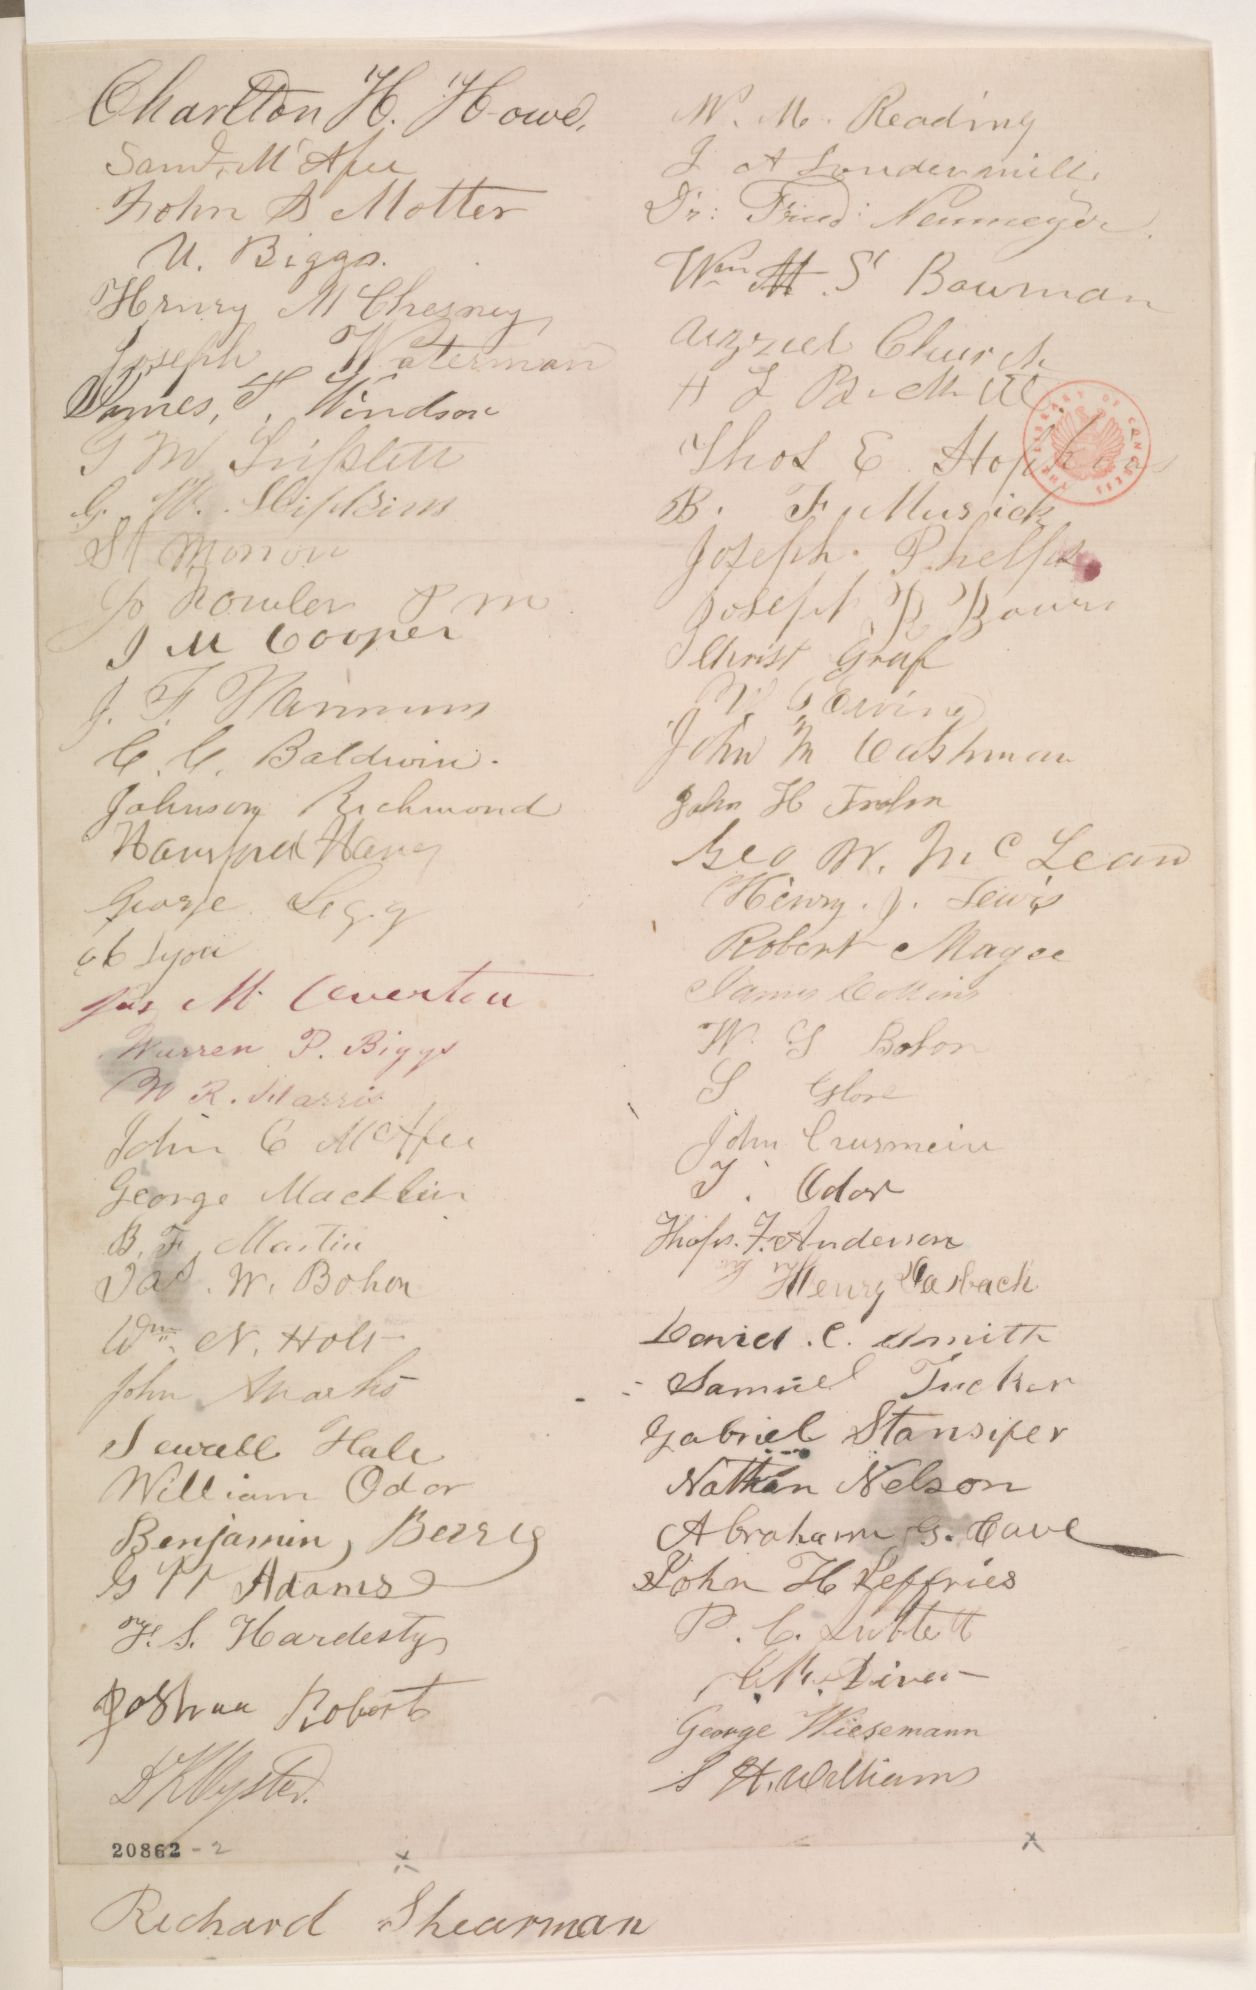 Charlton H. Howe,
Saml. McAfee
John S Motter
U. Biggs.
Henry McChesney
Joseph Waterman
James, F, Windson
T M Triplett
G. W. Hipkins
St Morrow
Jo Fowler P M
J M Cooper
J. F. Hannum
C. C. Baldwin.
Johnson Richmond
Hansford
George Legg
Lyon
Jas M. Overton
Warren P. Biggs
W R. Harris
John C McAfee
George Macklin
B. F. Martin
Jas. W. Bohon
Wm. N. Holt
John Marks
Sewall Hale
William Odor
Benjamin, Berry
G W Adams
F. S. Hardesty
Joshua Robert
Richard Shearman
W. M. Reading
J A Loudermill
Dr: Fried: Neumeyer.
Wm H. S Bowman
Church
H L
Thos E. Hopkins
B. F. Musick
Joseph. Phelps
Joseph B
Christ Graf
W G Ewing
John M Cashman
John H Frohn
Geo W. McLean
Henry. J. Lewis
Robert Magee
James Collins
W. S Bohon
S Glore
John
T. Odor
Thops. F. Anderson
Henry
David. C. Smith
Samuel Tucker
Gabriel Stansifer
Nathan Nelson
Abraham G. Cave
John H Jeffries
P. C.
George Wiesemann
S H. Williams
THE LIBRARY OF CONGRESS
20862-2